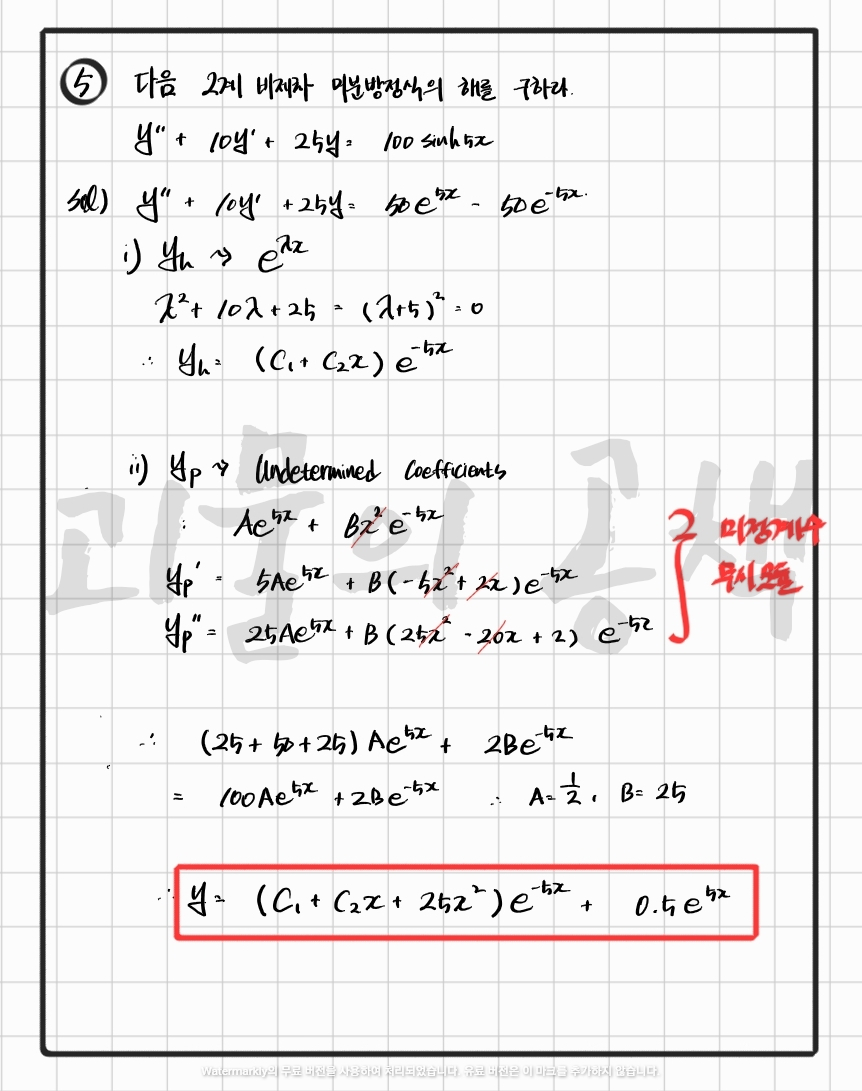 ⑤ 다음 2계 비제차 미분방정식의 해를 구하라.
y" + 10y' + 25y = 100 sinh5x
sol) y" + 10y' + 25y = 50e^5x - 50e^-5x.
i) yₕ ⇝ e^λx
λ² + 10λ + 25 = (λ+5)² = 0
∴ yₕ = (C₁ + C₂x) e^-5x
ii) yₚ ⇝ Undetermined Coefficients
: Ae^5x + Bx² e^-5x
yₚ' = 5Ae^5x + B(-5x² + 2x)e^-5x
yₚ" = 25Ae^5x + B(25x² - 20x + 2) e^-5x
미정계수
무시모듈
∴ (25 + 50 + 25) Ae^5x + 2Be^-5x
= 100Ae^5x + 2Be^-5x ∴ A = 1/2, B = 25
∴ y = (C₁ + C₂x + 25x²)e^-5x + 0.5e^5x
괴물의 공책
Watermarkly의 무료 버전을 사용하여 처리되었습니다. 유료 버전은 이 마크를 추가하지 않습니다.